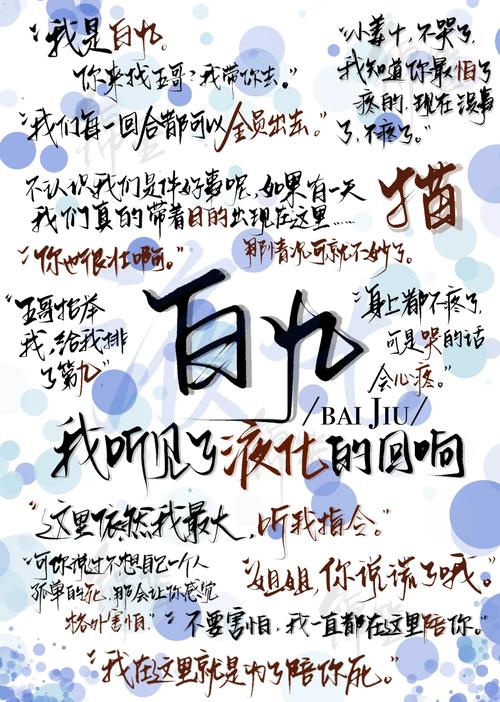 “我是白九。
你来找五哥？我带你去。”
“我们每一回合都可以全员出去。”
“小姜十，不哭了，
我知道你最怕了
疼的，现在没事
了，不疼了。”
不认识我们是件好事呢，如果有一天
我们真的带着目的出现在这里……
那情况可就不妙了。
猫
“你也很壮啊。”
“五哥抬举
我，给我排
了第九”
“身上都不疼了，
可是哭的话
会心疼。”
白九
/BAI JIU/
我听见了液化的回响
“这里依然我最大，听我指令。”
“可你说过不想自己一个人
孤单的死，那会让你感觉
格外害怕。”
“姐姐，你说谎了哦。”
“不要害怕，我一直都在这里陪你。”
“我在这里就是为了陪你死。”